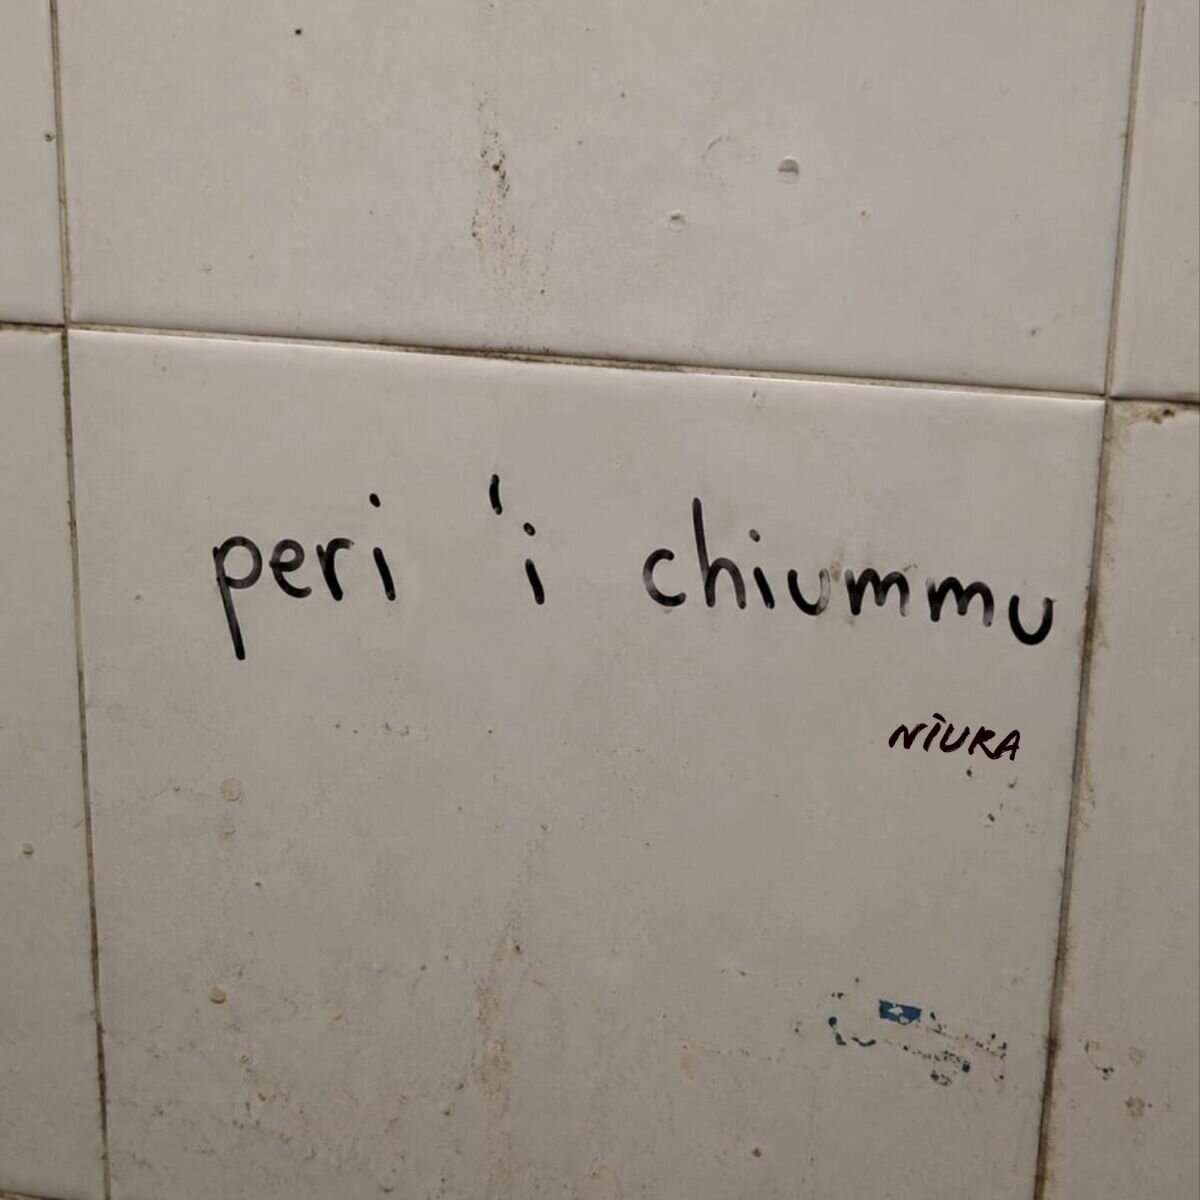 peri 'i chiummu
NÌURA